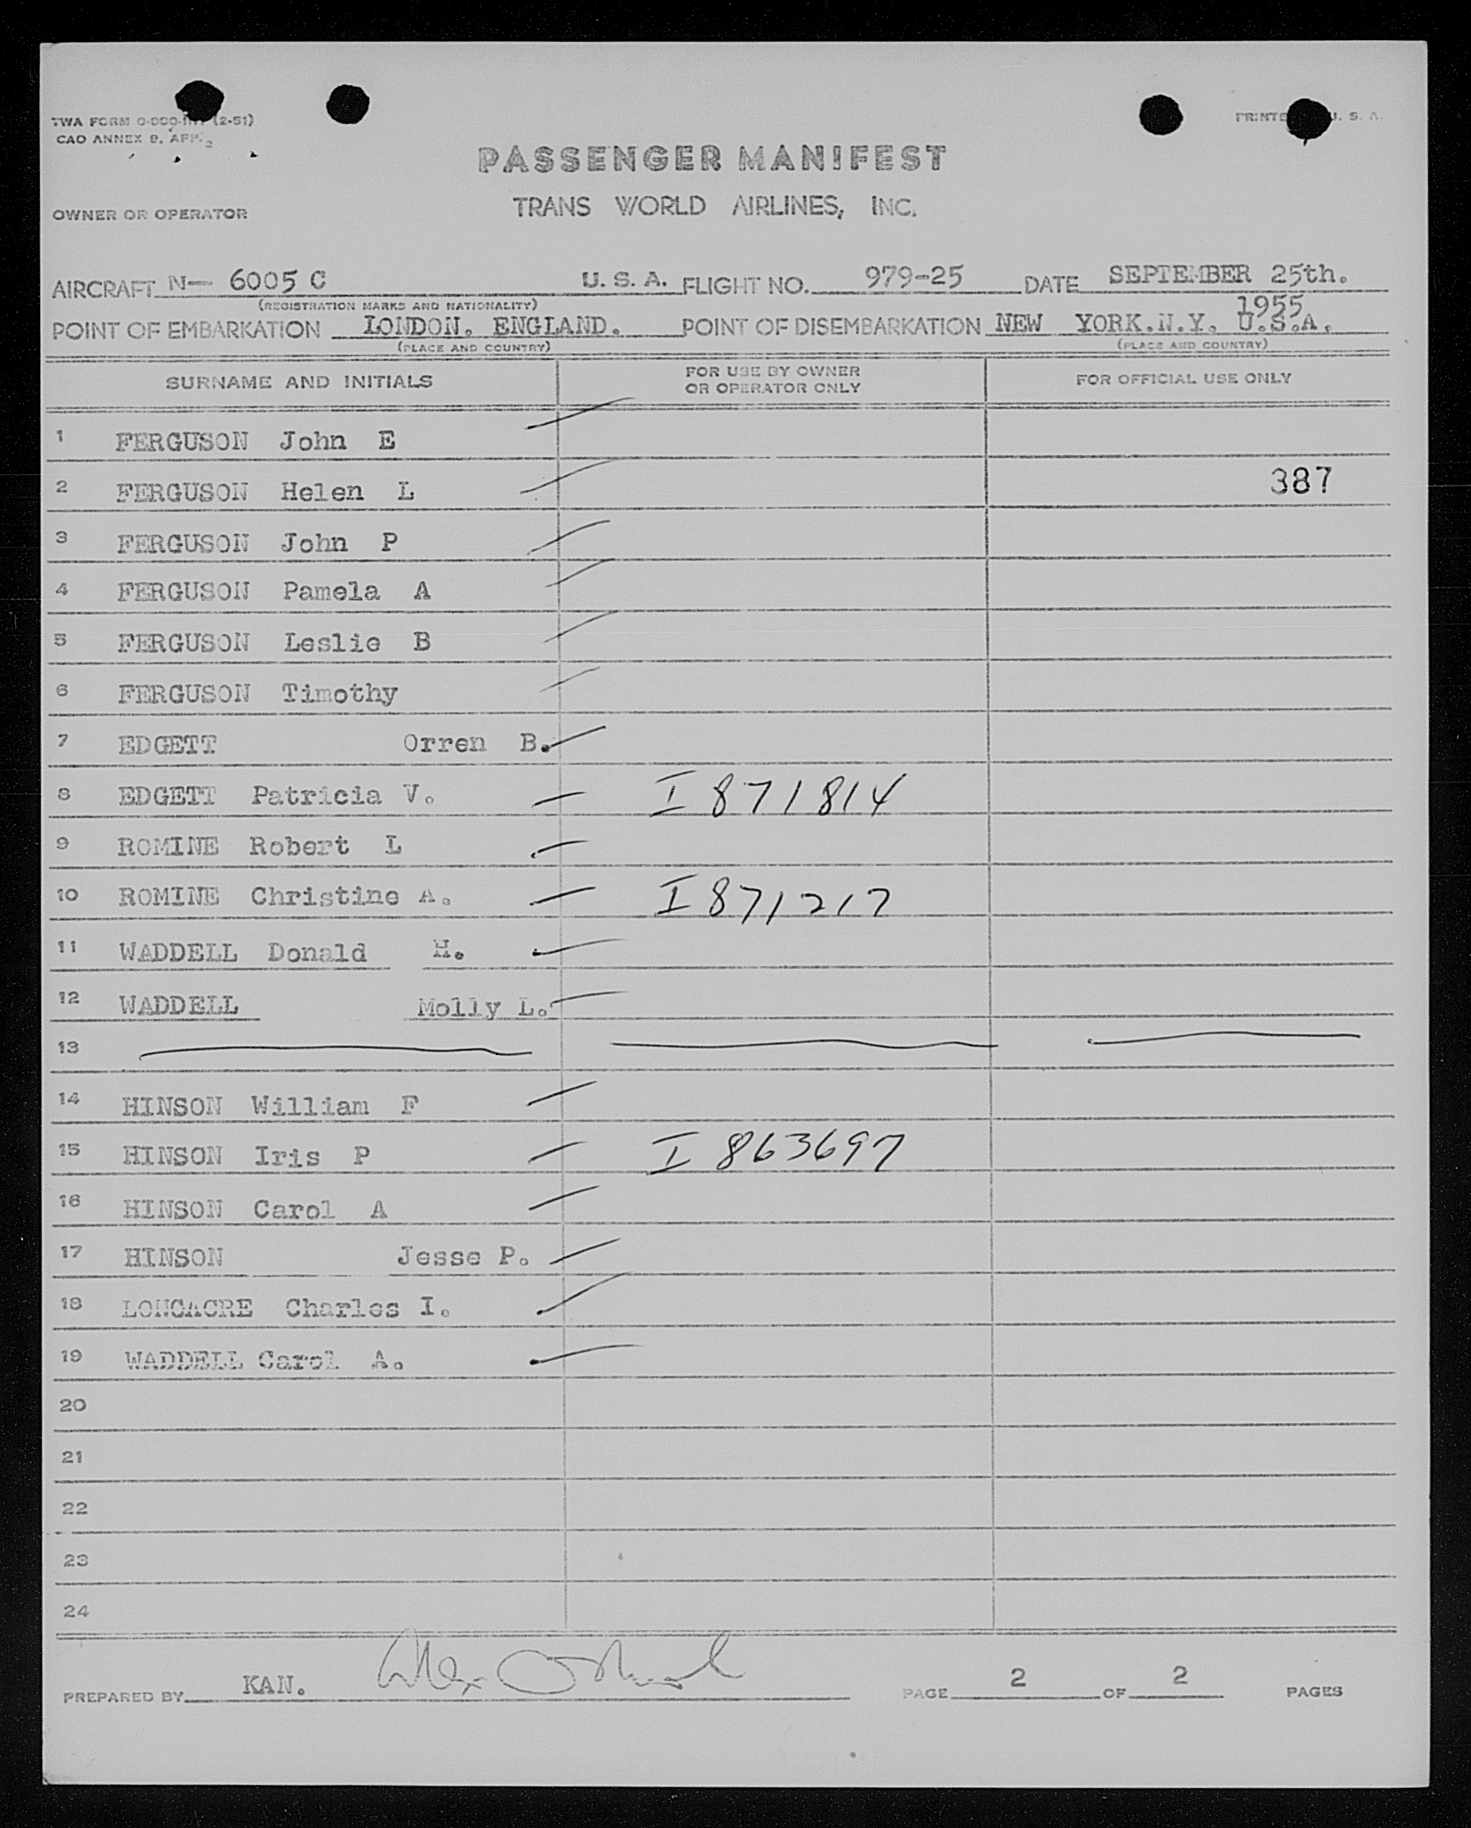 TWA FORM O-000-INT (2-51)
CAO ANNEX 9, APP. 2
PRINTED U. S. A.
PASSENGER MANIFEST
OWNER OR OPERATOR TRANS WORLD AIRLINES, INC.
AIRCRAFT N- 6005 C U. S. A. FLIGHT NO. 979-25 DATE SEPTEMBER 25th.
(REGISTRATION MARKS AND NATIONALITY) 1955
POINT OF EMBARKATION LONDON. ENGLAND. POINT OF DISEMBARKATION NEW YORK.N.Y. U.S.A.
(PLACE AND COUNTRY) (PLACE AND COUNTRY)
SURNAME AND INITIALS FOR USE BY OWNER OR OPERATOR ONLY FOR OFFICIAL USE ONLY
1 FERGUSON John E
2 FERGUSON Helen L 387
3 FERGUSON John P
4 FERGUSON Pamela A
5 FERGUSON Leslie B
6 FERGUSON Timothy
7 EDGETT Orren B.
8 EDGETT Patricia V. I 871814
9 ROMINE Robert L
10 ROMINE Christine A. I 871217
11 WADDELL Donald H.
12 WADDELL Molly L.
13
14 HINSON William F
15 HINSON Iris P I 863697
16 HINSON Carol A
17 HINSON Jesse P.
18 LONGACRE Charles I.
19 WADDELL Carol A.
20
21
22
23
24
PREPARED BY KAN. PAGE 2 OF 2 PAGES